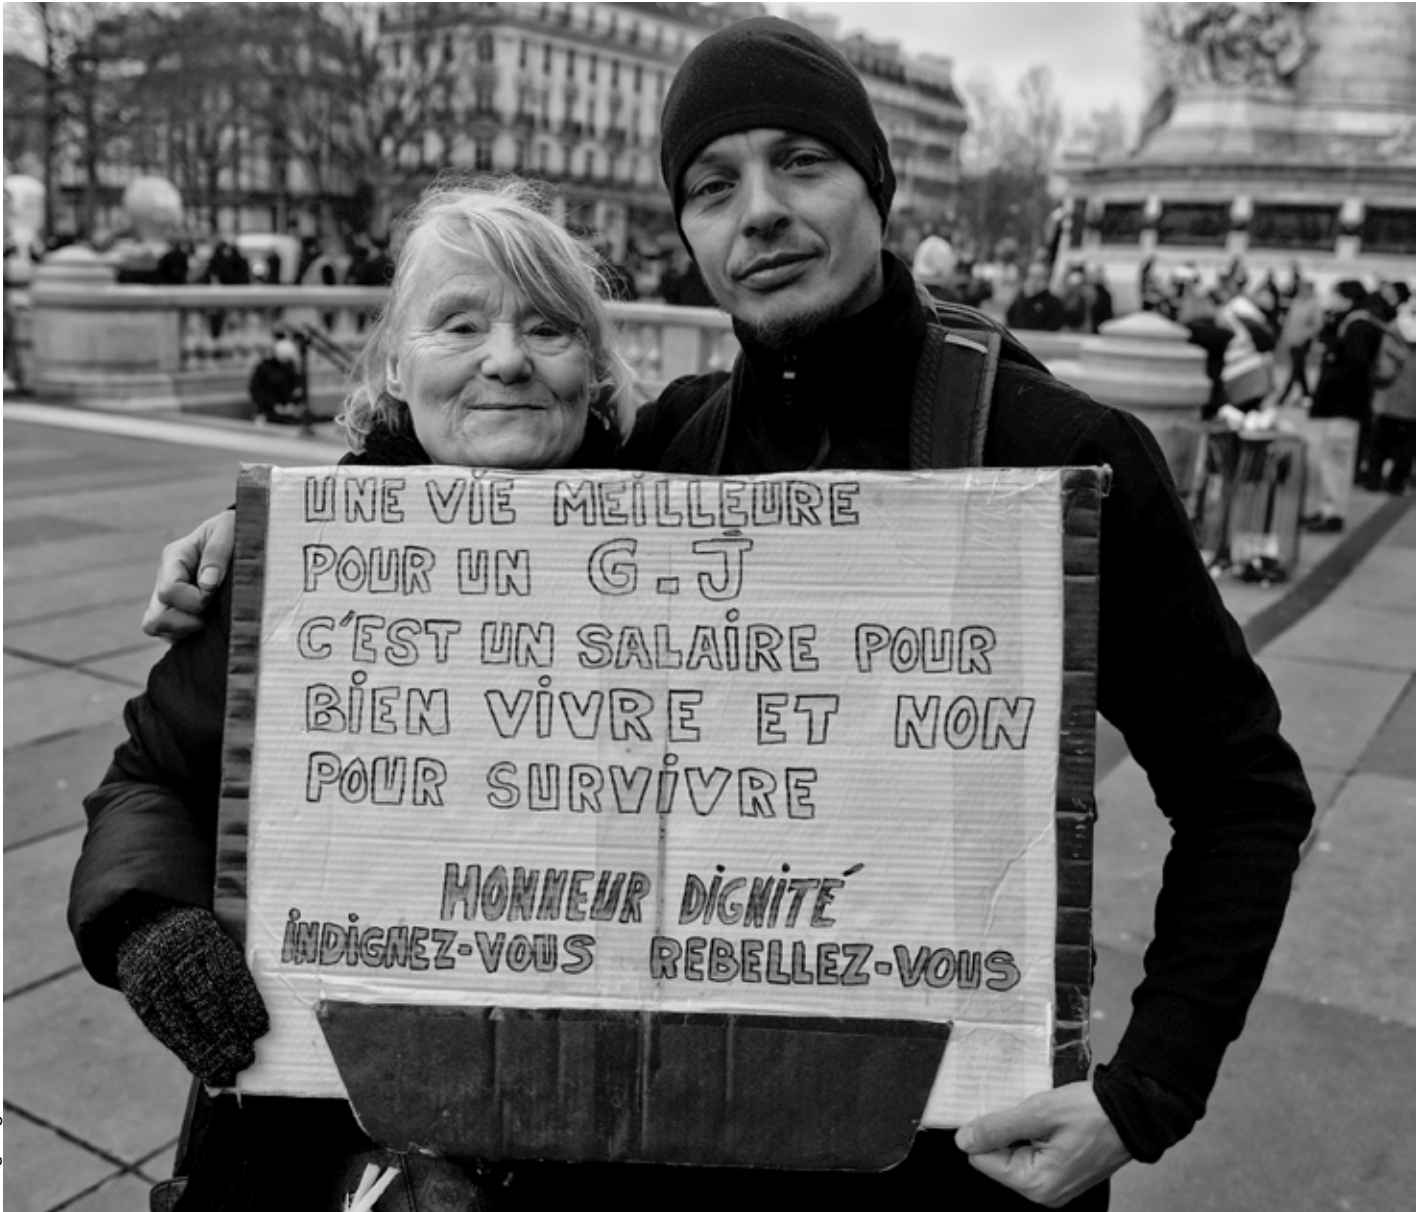 UNE VIE MEILLEURE
POUR UN G-J
C'EST UN SALAIRE POUR
BIEN VIVRE ET NON
POUR SURVIVRE
HONNEUR DIGNITÉ
INDIGNEZ-VOUS REBELLEZ-VOUS